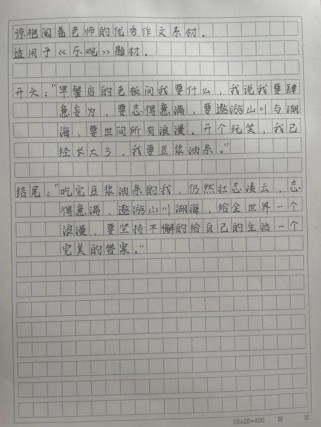 惊艳阅卷老师的优秀作文素材。
适用于《乐观》题材。
开头："早餐店的老板问我要什么，我说我要肆
意妄为，要志得意满，要遨游山川与湖
海，要世间所有浪漫。开个玩笑，我已
经长大了，我要豆浆油条。"
结尾："吃完豆浆油条的我，仍然壮志凌云，志
得意满，遨游山川湖海，给全世界一个
浪漫，要坚持不懈的给自己的生活一个
完美的答案。"
20×20=400